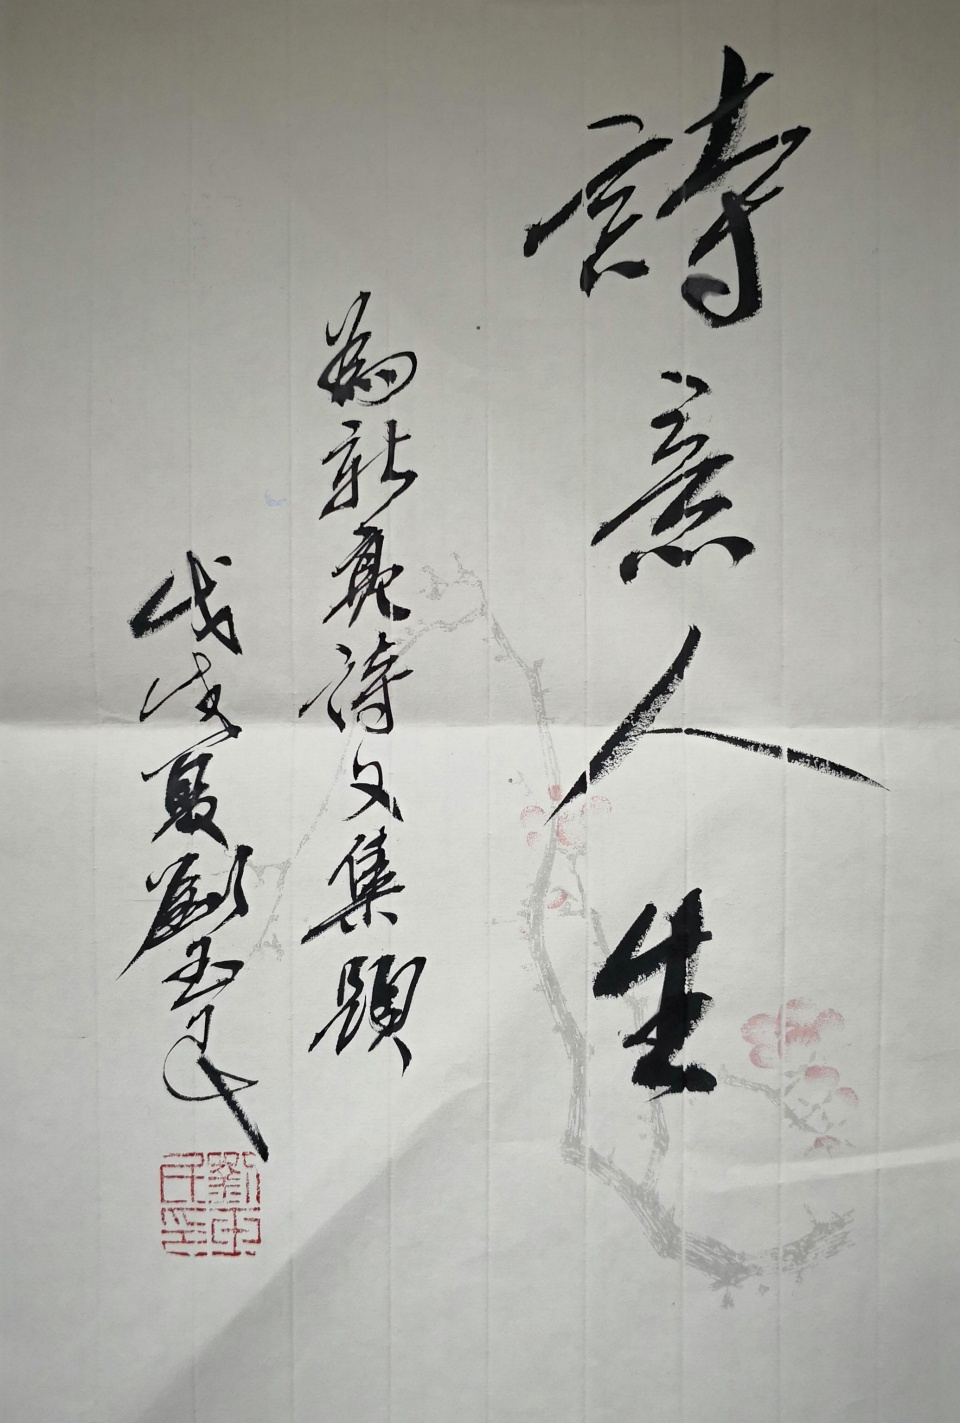 詩意人生
為新亮詩文集題
戊戌夏劉玉民
劉玉民印